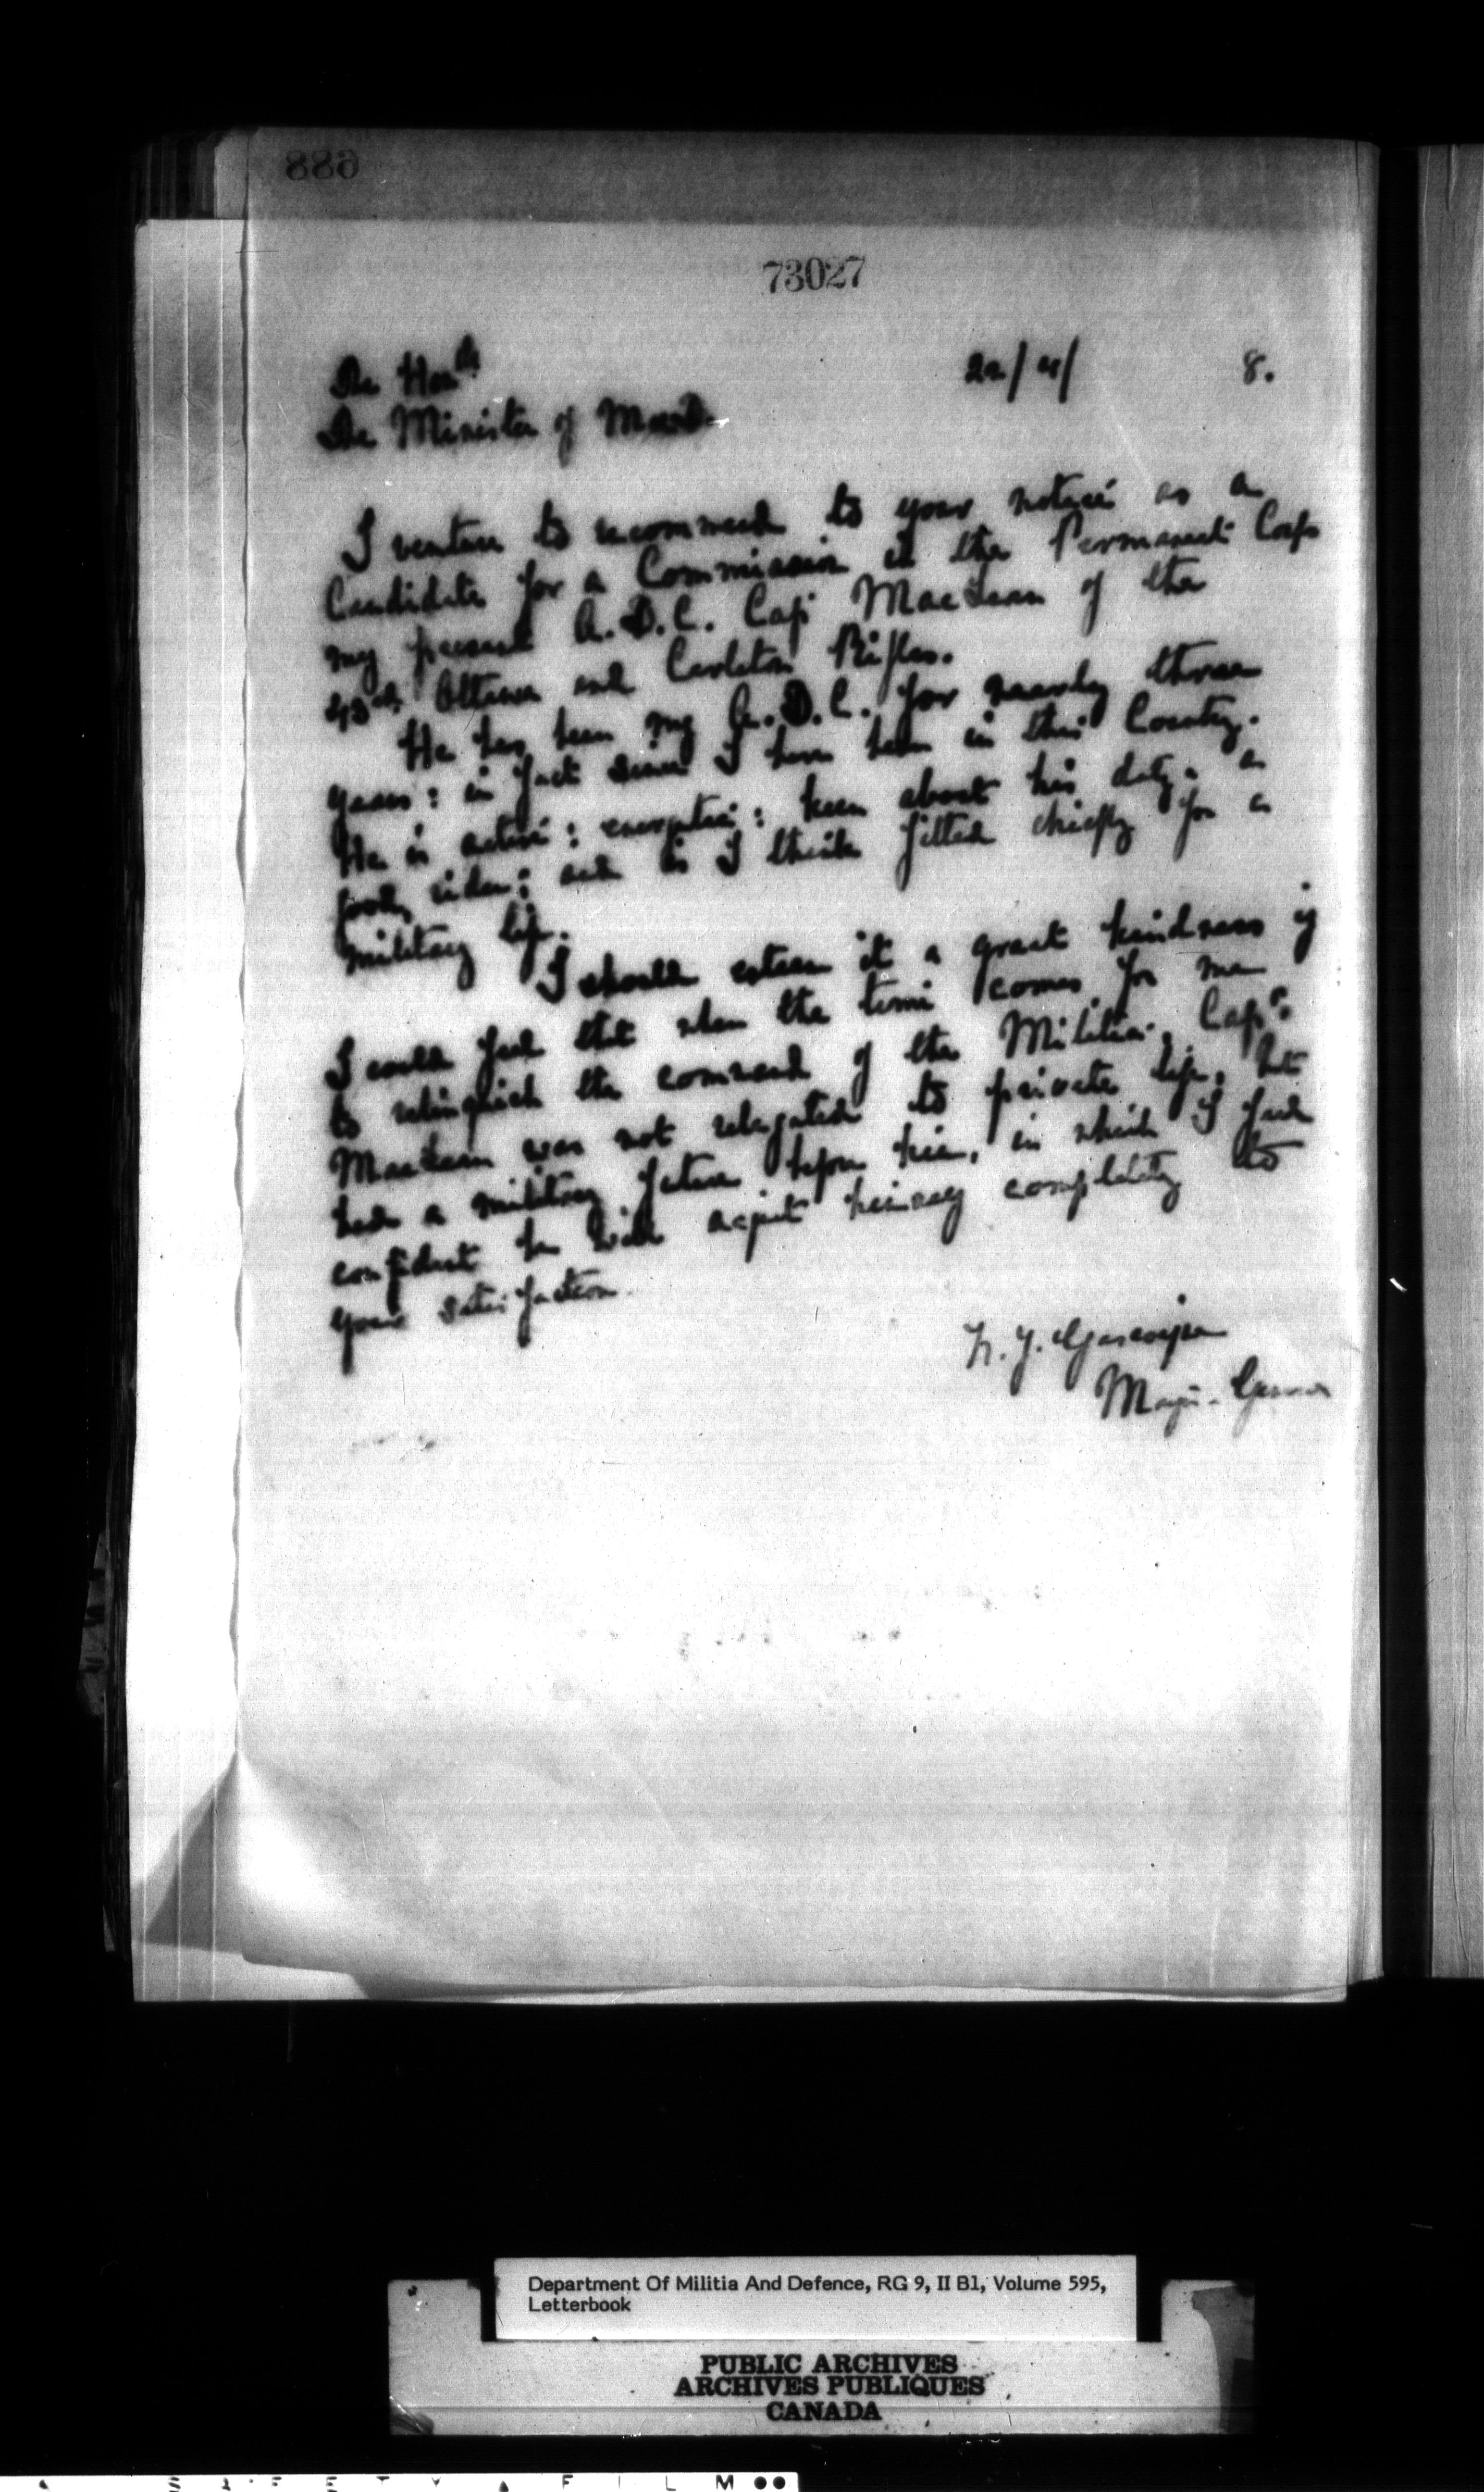 886
73027
The Honble 22/4/ 8.
The Minister of M and D.
I venture to recommend to your notice as a
Candidate for a Commission in the Permanent Corps
my present A.D.C. Capt MacLean of the
43rd Ottawa and Carleton Rifles.
He has been my A.D.C. for nearly three
years: in fact since I have been in this Country.
He is active: energetic: keen about his duty. a
good rider: and is I think fitted chiefly for a
military life.
I should esteem it a great kindness if
I could feel that when the time comes for me
to relinquish the command of the Militia, Capt.
MacLean was not relegated to private life, but
had a military future before him, in which I feel
confident he will acquit himself completely to
your satisfaction.
Gascoigne
Major-General
Department Of Militia And Defence, RG 9, II B1, Volume 595,
Letterbook
PUBLIC ARCHIVES
ARCHIVES PUBLIQUES
CANADA
SAFETY FILM